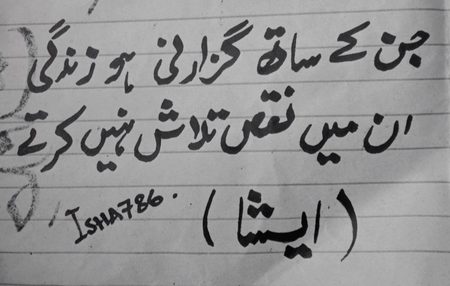 جن کے ساتھ گزارنی ہو زندگی
ان میں نقص تلاش نہیں کرتے
(ایشا)
ISHA786.